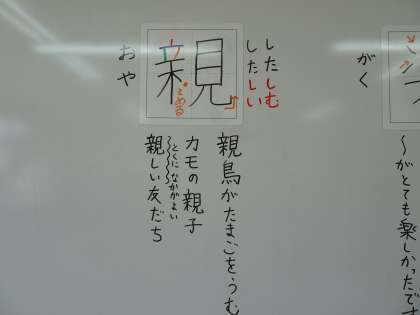 がく
〜がとても楽しかったです
したしむ
したしい
親
とめる
おや
親鳥がたまごをうむ
カモの親子
とくになかがよい
親しい友だち